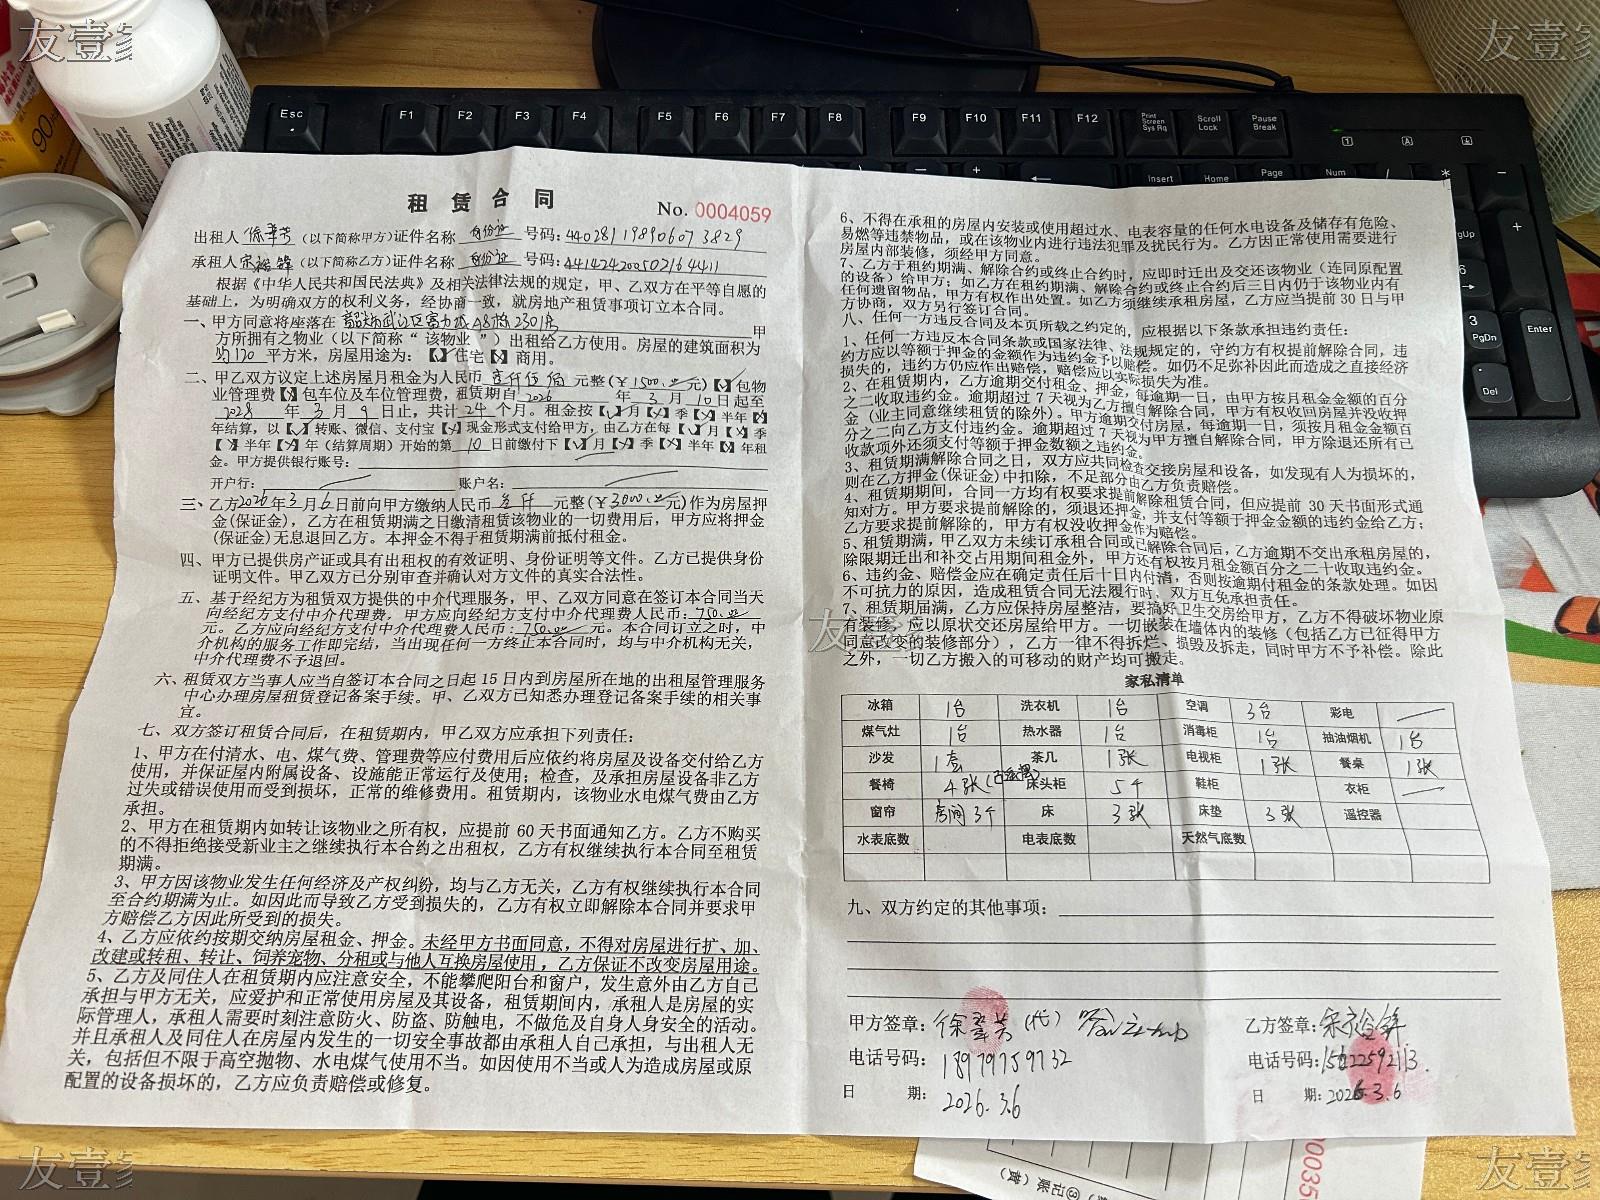 友壹家
友壹家
Esc F1 F2 F3 F4 F5 F6 F7 F8 F9 F10 F11 F12 Print Screen Sys Rq Scroll Lock Pause Break
Insert Home Page Num / * −
90
租赁合同
No. 0004059
出租人 徐翠芳 (以下简称甲方)证件名称 身份证 号码: 440281198906073829
承租人 宋裕锋 (以下简称乙方)证件名称 身份证 号码: 441424200502164411
根据《中华人民共和国民法典》及相关法律法规的规定,甲、乙双方在平等自愿的
基础上,为明确双方的权利义务,经协商一致,就房地产租赁事项订立本合同。
一、甲方同意将座落在 韶关市武江区富力城A8栋2301房 甲
方所拥有之物业(以下简称“该物业”)出租给乙方使用。房屋的建筑面积为
约120 平方米,房屋用途为:【√】住宅【×】商用。
二、甲乙双方议定上述房屋月租金为人民币 壹仟伍佰 元整(¥1500.00元)【×】包物
业管理费【×】包车位及车位管理费,租赁期自 2026 年 3 月 10 日起至
2028 年 3 月 9 日止,共计 24 个月。租金按【√】月【×】季【×】半年【×】
年结算,以【√】转账、微信、支付宝【×】现金形式支付给甲方,由乙方在每【√】月【×】季
【×】半年【×】年(结算周期)开始的第 10 日前缴付下【√】月【×】季【×】半年【×】年租
金。甲方提供银行账号:
开户行: 账户名:
三、乙方2026年3月6日前向甲方缴纳人民币 叁仟 元整(¥3000.00元)作为房屋押
金(保证金),乙方在租赁期满之日缴清租赁该物业的一切费用后,甲方应将押金
(保证金)无息退回乙方。本押金不得于租赁期满前抵付租金。
四、甲方已提供房产证或具有出租权的有效证明、身份证明等文件。乙方已提供身份
证明文件。甲乙双方已分别审查并确认对方文件的真实合法性。
五、基于经纪方为租赁双方提供的中介代理服务,甲、乙双方同意在签订本合同当天
向经纪方支付中介代理费,甲方应向经纪方支付中介代理费人民币: 750.00
元。乙方应向经纪方支付中介代理费人民币: 750.00 元。本合同订立之时,中
介机构的服务工作即完结,当出现任何一方终止本合同时,均与中介机构无关,
中介代理费不予退回。
六、租赁双方当事人应当自签订本合同之日起15日内到房屋所在地的出租屋管理服务
中心办理房屋租赁登记备案手续。甲、乙双方已知悉办理登记备案手续的相关事
宜。
七、双方签订租赁合同后,在租赁期内,甲乙双方应承担下列责任:
1、甲方在付清水、电、煤气费、管理费等应付费用后应依约将房屋及设备交付给乙方
使用,并保证屋内附属设备、设施能正常运行及使用;检查,及承担房屋设备非乙方
过失或错误使用而受到损坏,正常的维修费用。租赁期内,该物业水电煤气费由乙方
承担。
2、甲方在租赁期内如转让该物业之所有权,应提前60天书面通知乙方。乙方不购买
的不得拒绝接受新业主之继续执行本合约之出租权,乙方有权继续执行本合同至租赁
期满。
3、甲方因该物业发生任何经济及产权纠纷,均与乙方无关,乙方有权继续执行本合同
至合约期满为止。如因此而导致乙方受到损失的,乙方有权立即解除本合同并要求甲
方赔偿乙方因此所受到的损失。
4、乙方应依约按期交纳房屋租金、押金。未经甲方书面同意,不得对房屋进行扩、加、
改建或转租、转让、饲养宠物、分租或与他人互换房屋使用,乙方保证不改变房屋用途。
5、乙方及同住人在租赁期内应注意安全,不能攀爬阳台和窗户,发生意外由乙方自己
承担与甲方无关,应爱护和正常使用房屋及其设备,租赁期间内,承租人是房屋的实
际管理人,承租人需要时刻注意防火、防盗、防触电,不做危及自身人身安全的活动。
并且承租人及同住人在房屋内发生的一切安全事故都由承租人自己承担,与出租人无
关,包括但不限于高空抛物、水电煤气使用不当。如因使用不当或人为造成房屋或原
配置的设备损坏的,乙方应负责赔偿或修复。
6、不得在承租的房屋内安装或使用超过水、电表容量的任何水电设备及储存有危险、
易燃等违禁物品,或在该物业内进行违法犯罪及扰民行为。乙方因正常使用需要进行
房屋内部装修,须经甲方同意。
7、乙方于租约期满、解除合约或终止合约时,应即时迁出及交还该物业(连同原配置
的设备)给甲方;如乙方在租约期满、解除合约或终止合约后三日内仍于该物业内有
任何遗留物品,甲方有权作出处置。如乙方须继续承租房屋,乙方应当提前30日与甲
方协商,双方另行签订合同。
八、任何一方违反合同及本页所载之约定的,应根据以下条款承担违约责任:
1、任何一方违反本合同条款或国家法律、法规规定的,守约方有权提前解除合同,违
约方应以等额于押金的金额作为违约金予以赔偿。如仍不足弥补因此而造成之直接经济
损失的,违约方仍应作出赔偿,赔偿应以实际损失为准。
2、在租赁期内,乙方逾期交付租金、押金,每逾期一日,由甲方按月租金金额的百分
之二收取违约金。逾期超过7天视为乙方擅自解除合同,甲方有权收回房屋并没收押
金(业主同意继续租赁的除外)。甲方逾期交付房屋,每逾期一日,须按月租金金额百
分之二向乙方支付违约金。逾期超过7天视为甲方擅自解除合同,甲方除退还所有已
收款项外还须支付等额于押金数额之违约金。
3、租赁期满解除合同之日,双方应共同检查交接房屋和设备,如发现有人为损坏的,
则在乙方押金(保证金)中扣除,不足部分由乙方负责赔偿。
4、租赁期期间,合同一方均有权要求提前解除租赁合同,但应提前30天书面形式通
知对方。甲方要求提前解除的,须退还押金,并支付等额于押金金额的违约金给乙方;
乙方要求提前解除的,甲方有权没收押金作为赔偿。
5、租赁期满,甲乙双方未续订承租合同或已解除合同后,乙方逾期不交出承租房屋的,
除限期迁出和补交占用期间租金外,甲方还有权按月租金额百分之二十收取违约金。
6、违约金、赔偿金应在确定责任后十日内付清,否则按逾期付租金的条款处理。如因
不可抗力的原因,造成租赁合同无法履行时,双方互免承担责任。
7、租赁期届满,乙方应保持房屋整洁,要搞好卫生交房给甲方,乙方不得破坏物业原
有装修,应以原状交还房屋给甲方。一切嵌装在墙体内的装修(包括乙方已征得甲方
同意改变的装修部分),乙方一律不得拆烂、损毁及拆走,同时甲方不予补偿。除此
之外,一切乙方搬入的可移动的财产均可搬走。
友壹家
家私清单
冰箱 1台 洗衣机 1台 空调 3台 彩电
煤气灶 1台 热水器 1台 消毒柜 1台 抽油烟机 1台
沙发 1套 茶几 1张 电视柜 1张 餐桌 1张
餐椅 4张 床头柜 5个 鞋柜 衣柜
窗帘 房间3个 床 3张 床垫 3张 遥控器
水表底数 电表底数 天然气底数
九、双方约定的其他事项:
甲方签章: 徐翠芳(代)
电话号码: 18979759732
日 期: 2026.3.6
乙方签章: 宋裕锋
电话号码: 15622592113.
日 期: 2026.3.6
PgUp +
6 →
3 PgDn Enter
Del
③记账(黄)
0035
友壹家
友壹家